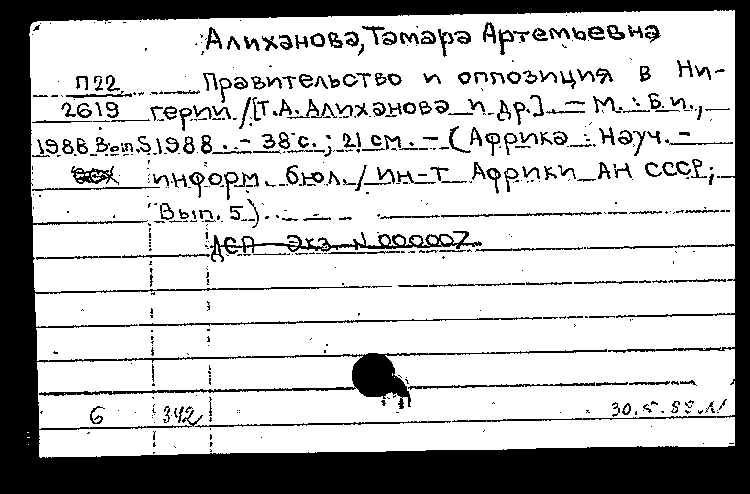 Алиханова, Тамара Артемьевна
П22 Правительство и оппозиция в Ни-
2619 герии / [Т.А. Алиханова и др.]. – М. : Б.и.,
1988 Вып.5 1988. – 38 с. ; 21 см. – (Африка : Науч.-
информ. бюл. / Ин-т Африки АН СССР;
Вып. 5).
ДСП Экз. N 000007
6 342 30.5.89